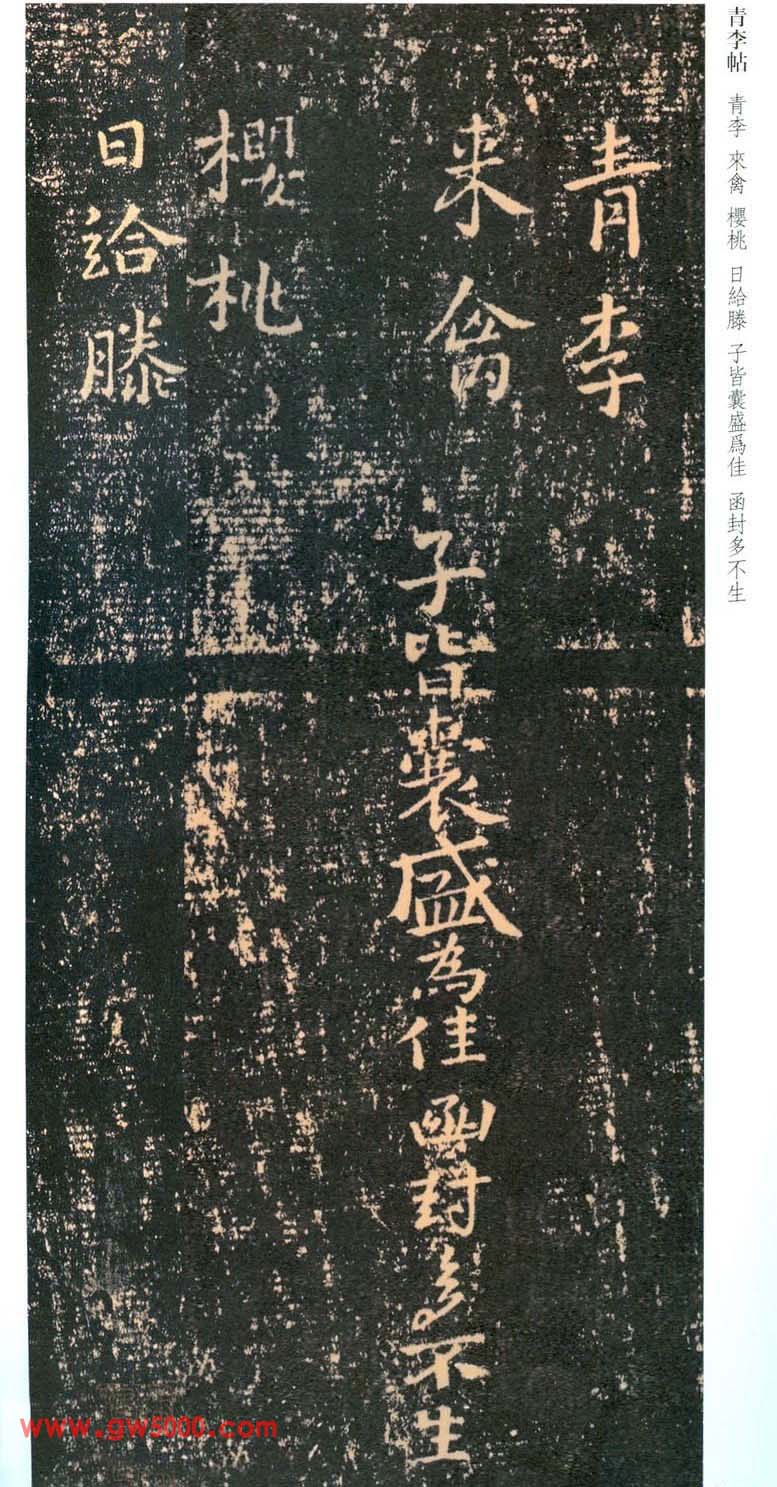 青李帖 青李 來禽 櫻桃 日給滕 子皆囊盛爲佳 函封多不生
青李
来禽
子皆囊盛為佳函封多不生
櫻桃
日給滕
www.gw5000.com